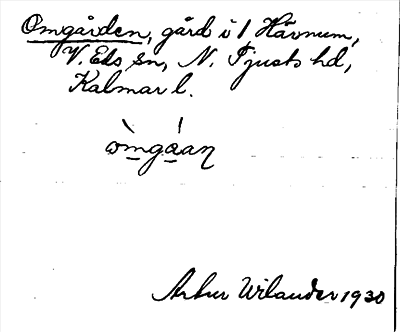 Omgården, gård i 1 Hävnum,
V. Eds sn, N. Tjusts hd,
Kalmar l.
òmgáan
Artur Wilander 1930